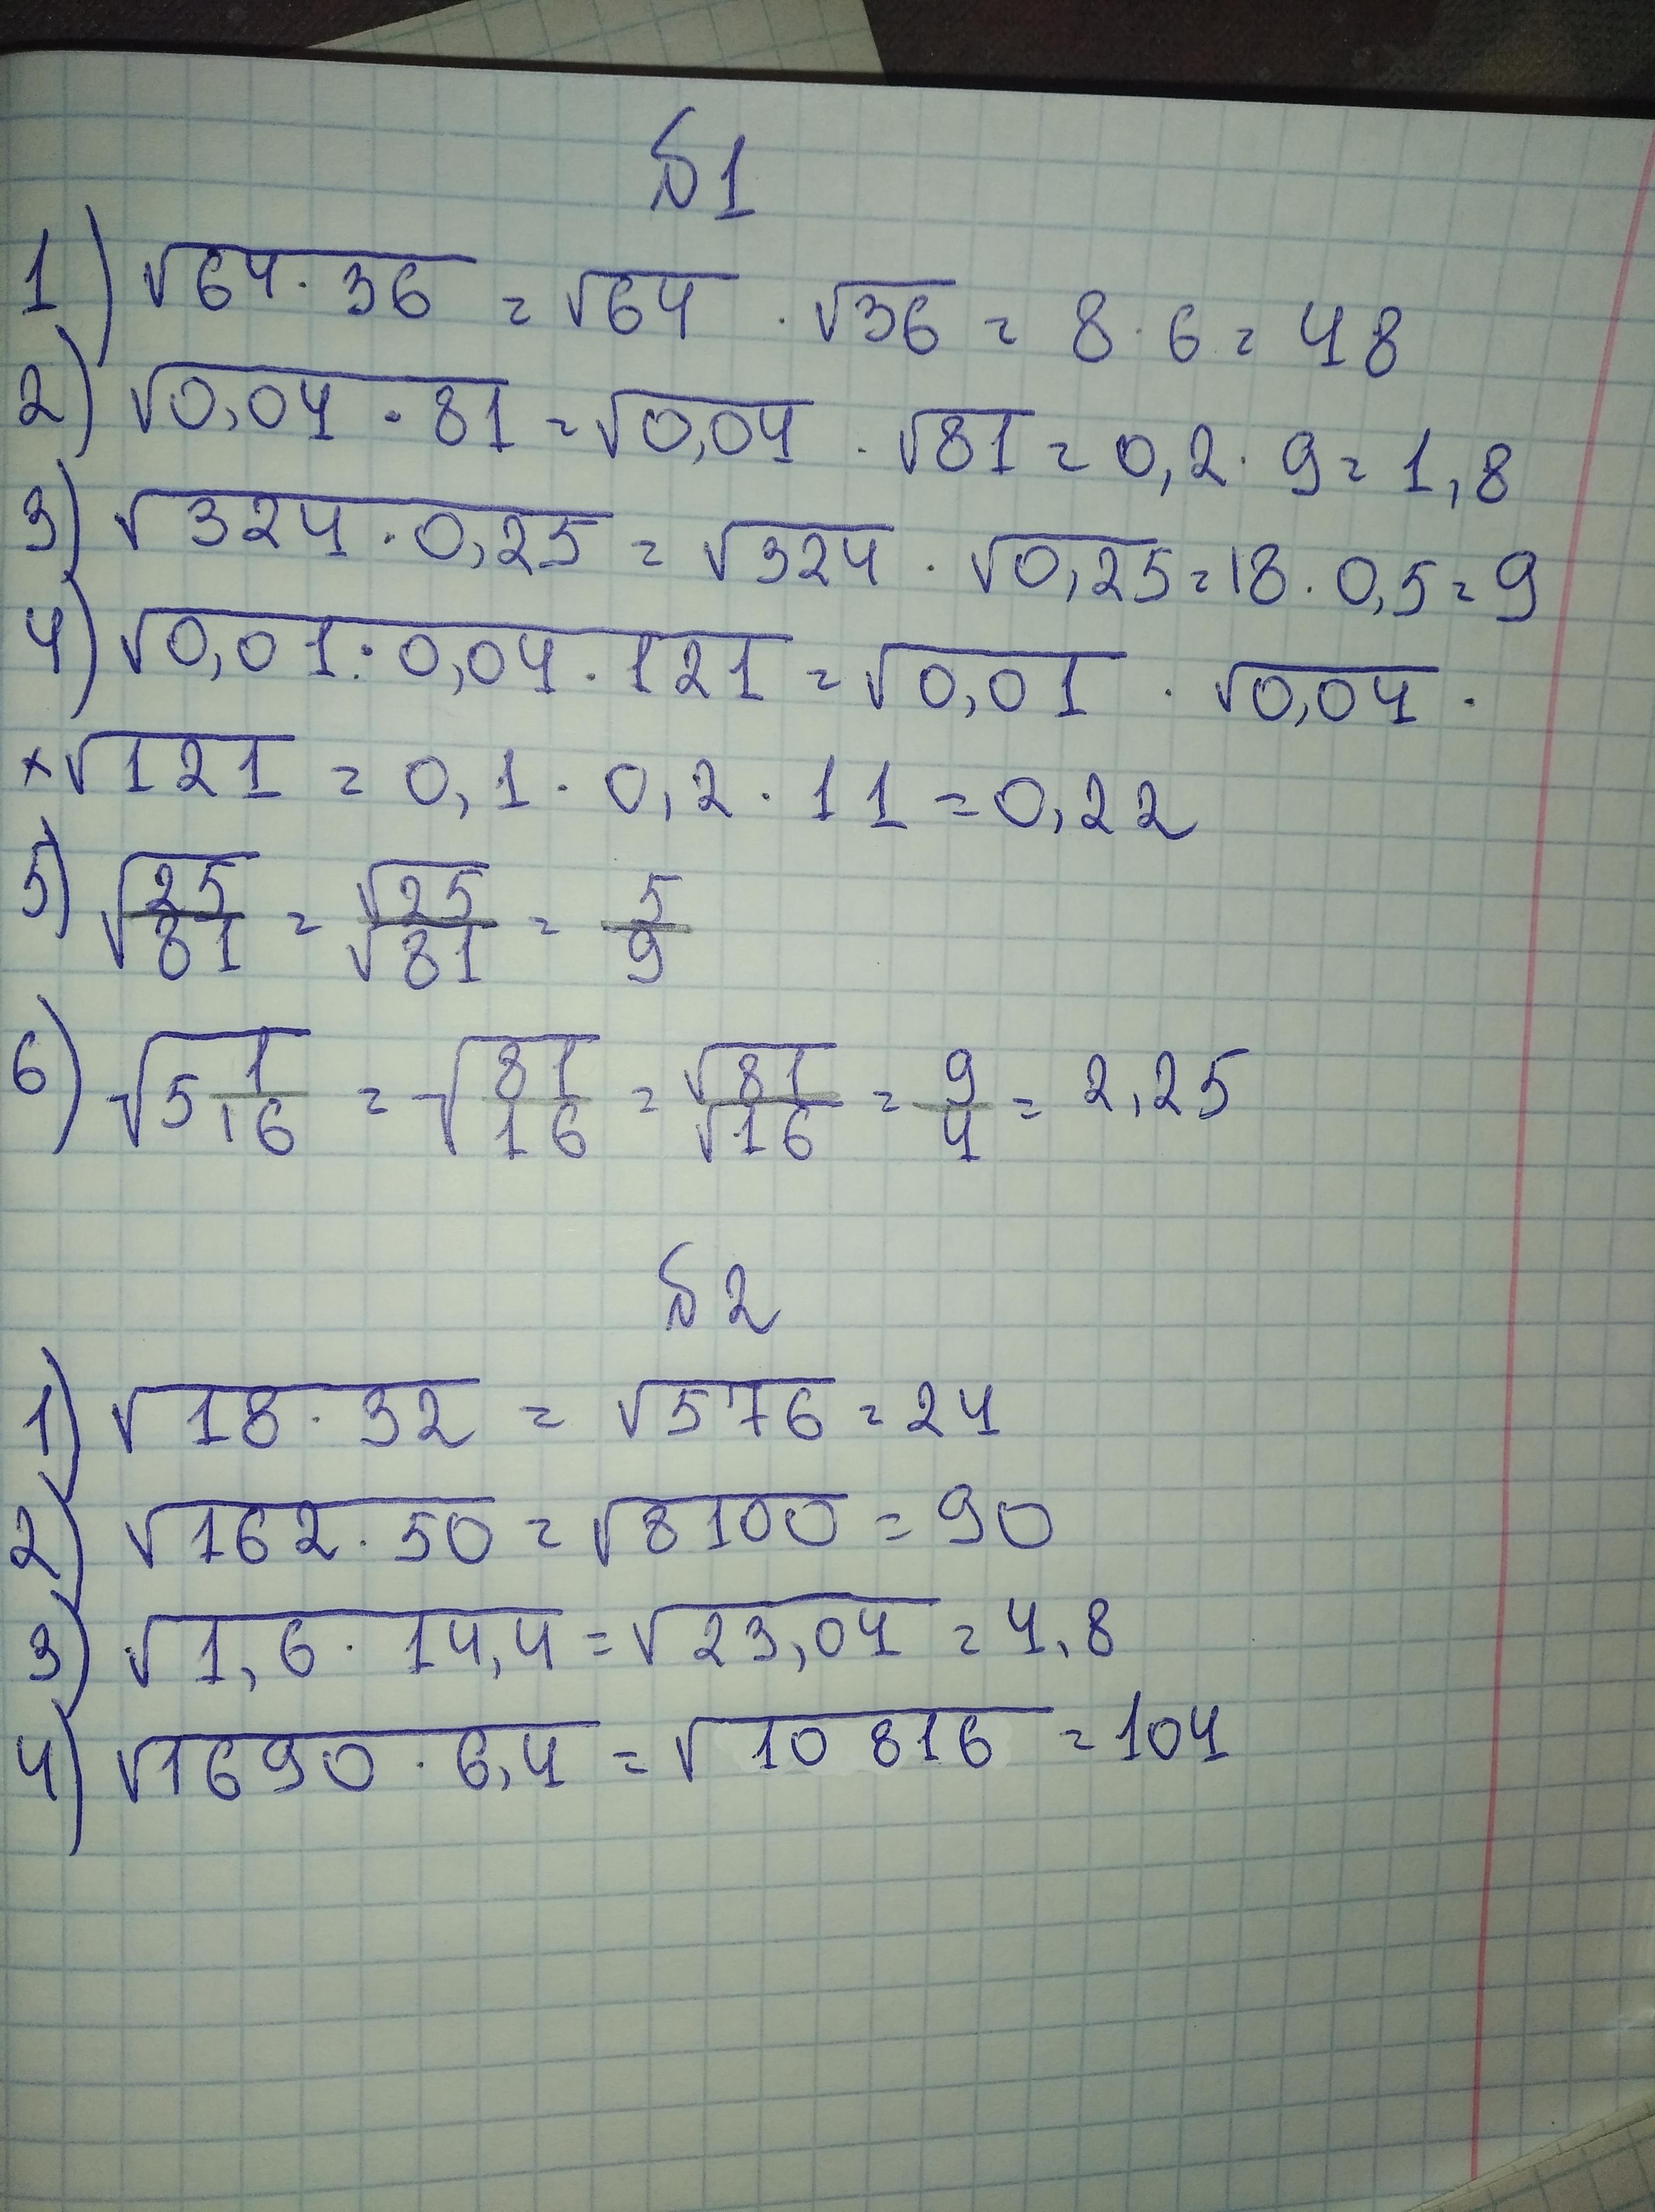 №1
1) √64·36 = √64 · √36 = 8·6 = 48
2) √0,04·81 = √0,04 · √81 = 0,2·9 = 1,8
3) √324·0,25 = √324 · √0,25 = 18·0,5 = 9
4) √0,01·0,04·121 = √0,01 · √0,04 ·
×√121 = 0,1·0,2·11 = 0,22
5) √25/81 = √25/√81 = 5/9
6) √5 1/16 = √81/16 = √81/√16 = 9/4 = 2,25
№2
1) √18·32 = √576 = 24
2) √162·50 = √8100 = 90
3) √1,6·14,4 = √23,04 = 4,8
4) √1690·6,4 = √10 816 = 104